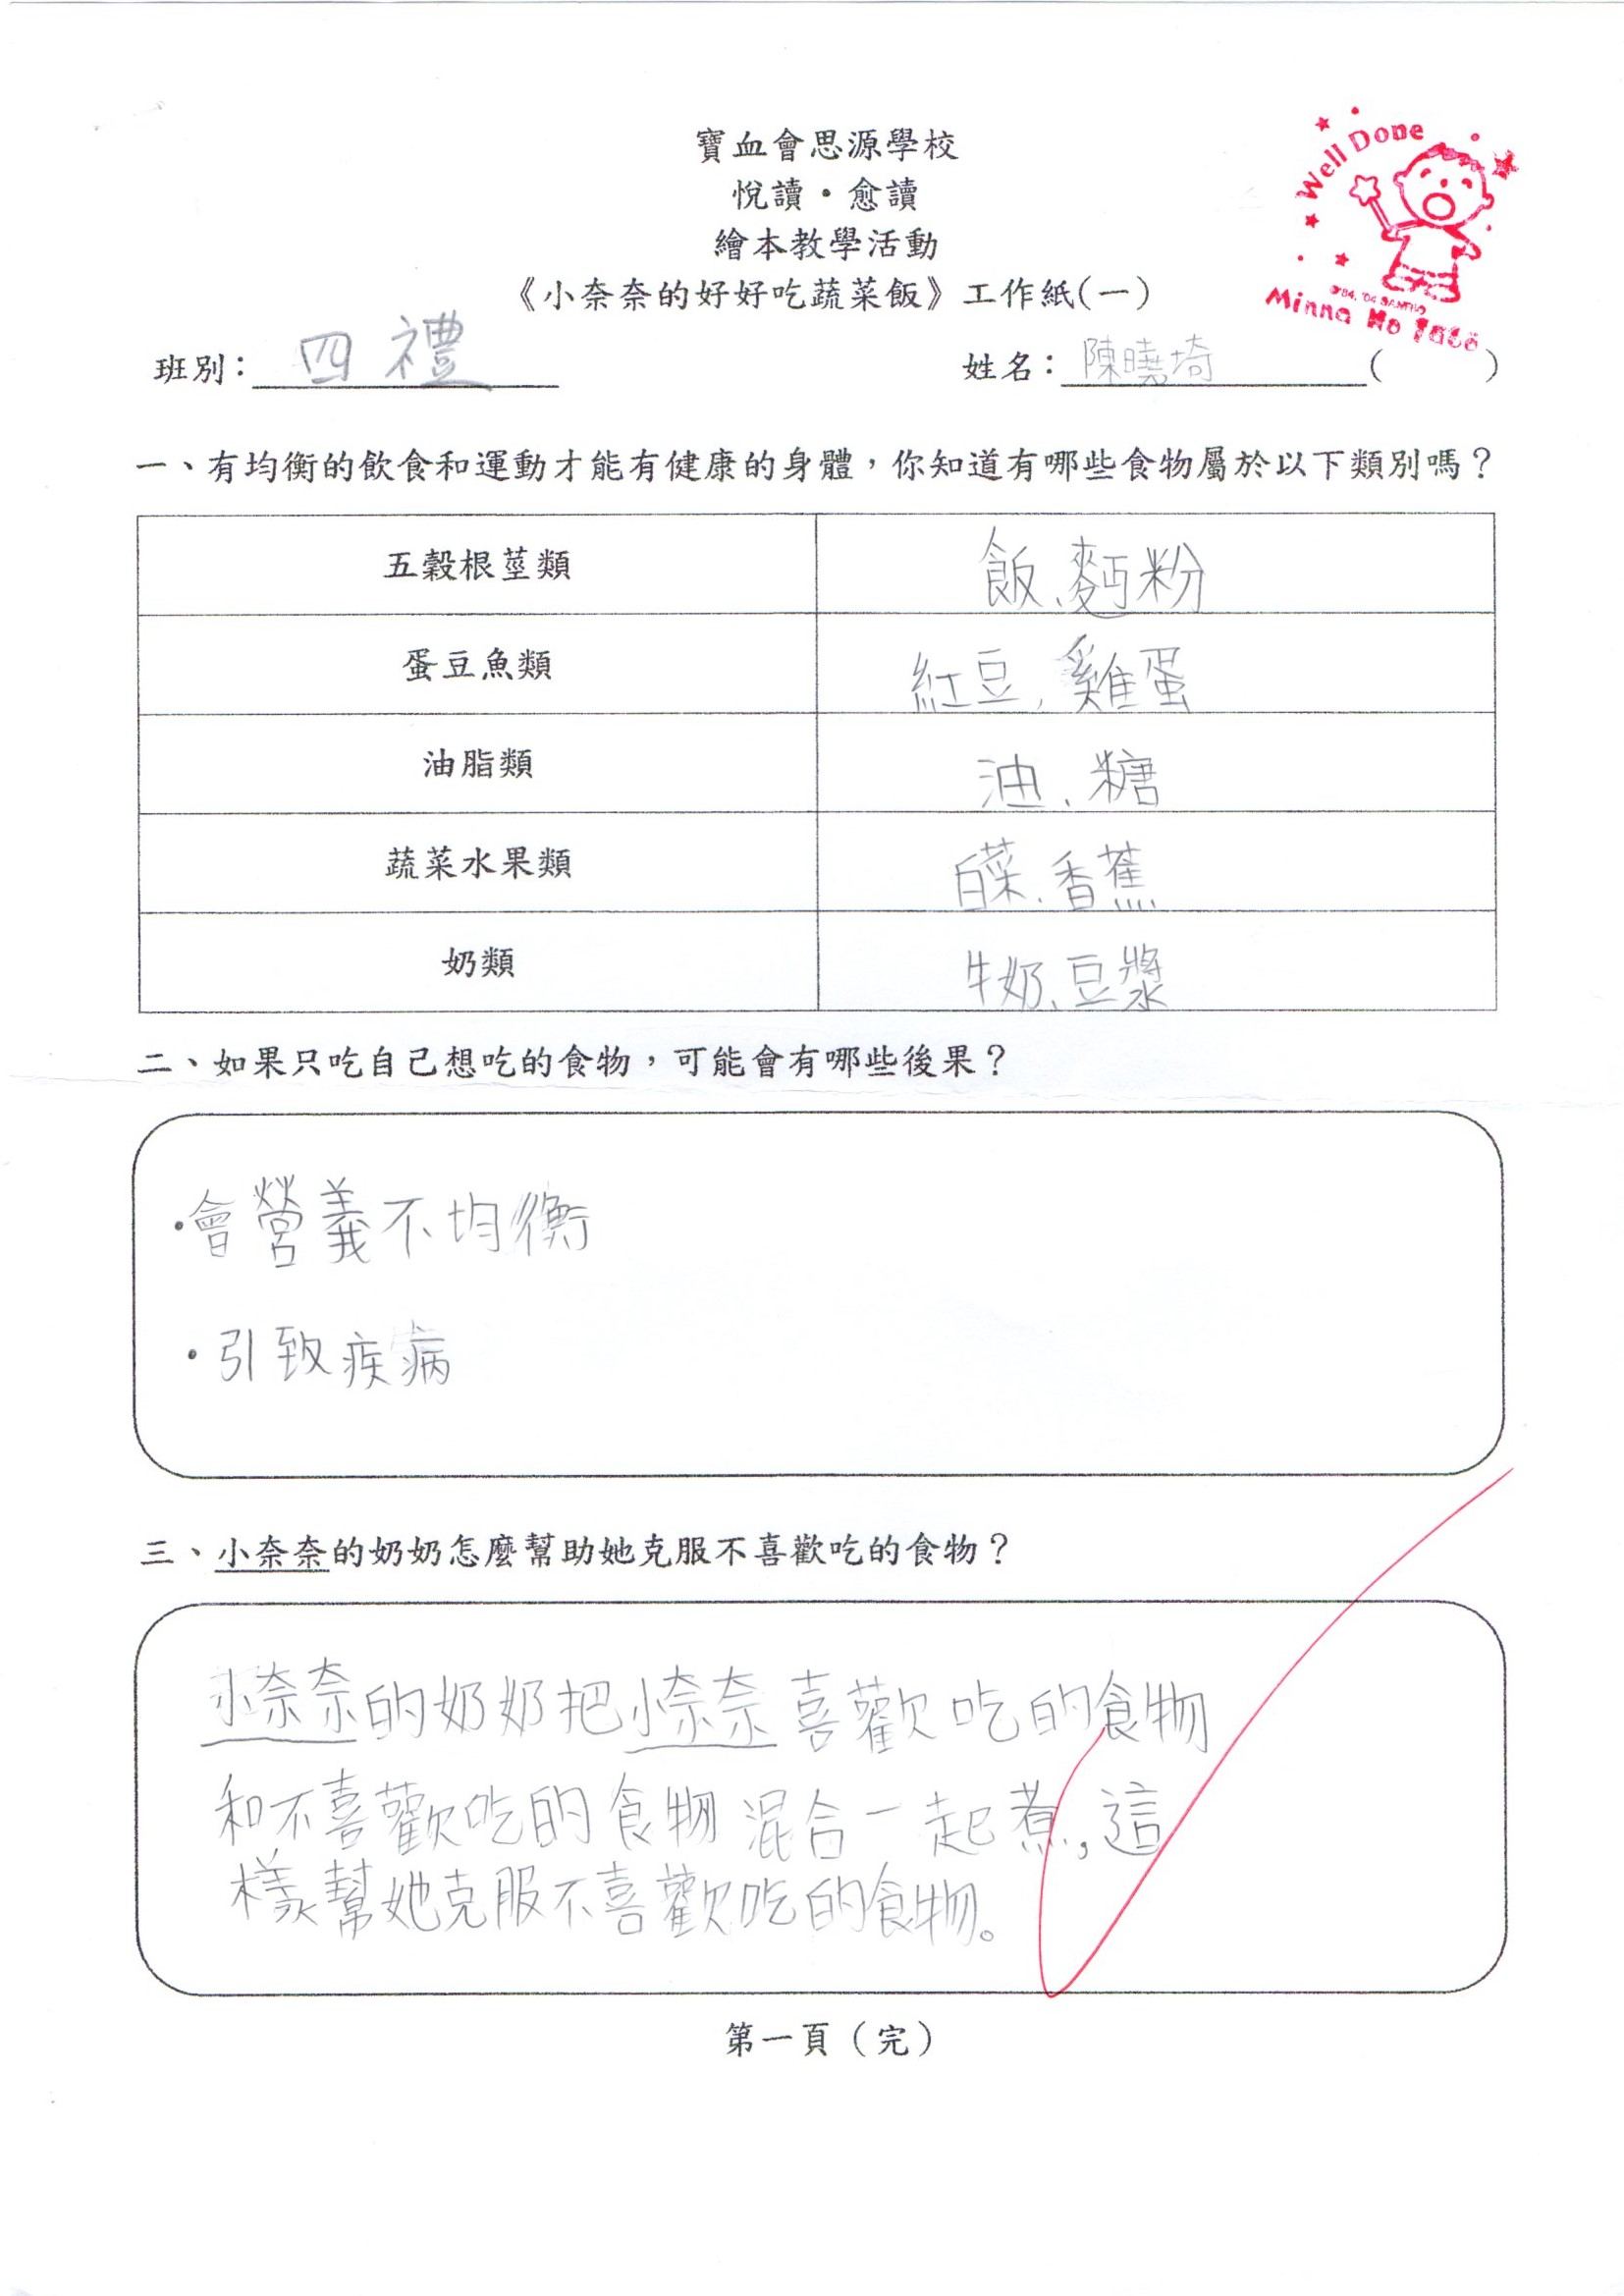 寶血會思源學校
悅讀・愈讀
繪本教學活動
《小奈奈的好好吃蔬菜飯》工作紙(一)
Well Done
Minna No Tabo
班別：四禮 姓名：陳曉埼( )
一、有均衡的飲食和運動才能有健康的身體，你知道有哪些食物屬於以下類別嗎？
五穀根莖類 飯、麵粉
蛋豆魚類 紅豆、雞蛋
油脂類 油、糖
蔬菜水果類 白菜、香蕉
奶類 牛奶、豆漿
二、如果只吃自己想吃的食物，可能會有哪些後果？
・會營義不均衡
・引致疾病
三、小奈奈的奶奶怎麼幫助她克服不喜歡吃的食物？
小奈奈的奶奶把小奈奈喜歡吃的食物
和不喜歡吃的食物混合一起煮，這
樣幫她克服不喜歡吃的食物。
第一頁（完）